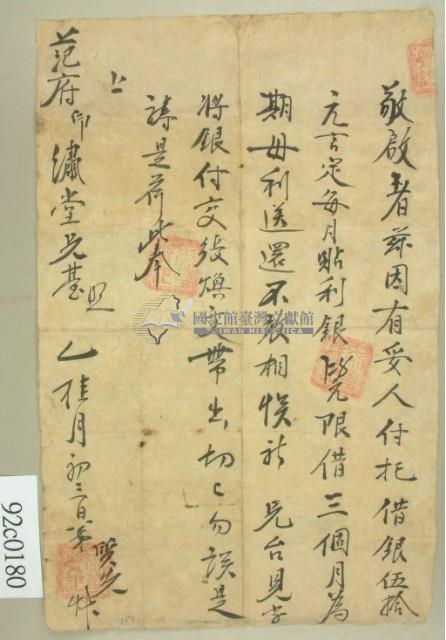 敬啟者茲因有受人付托借銀伍拾
元言定每月貼利銀 限借三個月為
期母利送還不致相悞祈 兄台見字
將銀付交後煥交帶出切乙勿誤是
禱是荷此奉
上
范府印繡堂兄臺照
乙桂月初三日弟
國史館臺灣文獻館
TAIWAN HISTORICA
92c0180